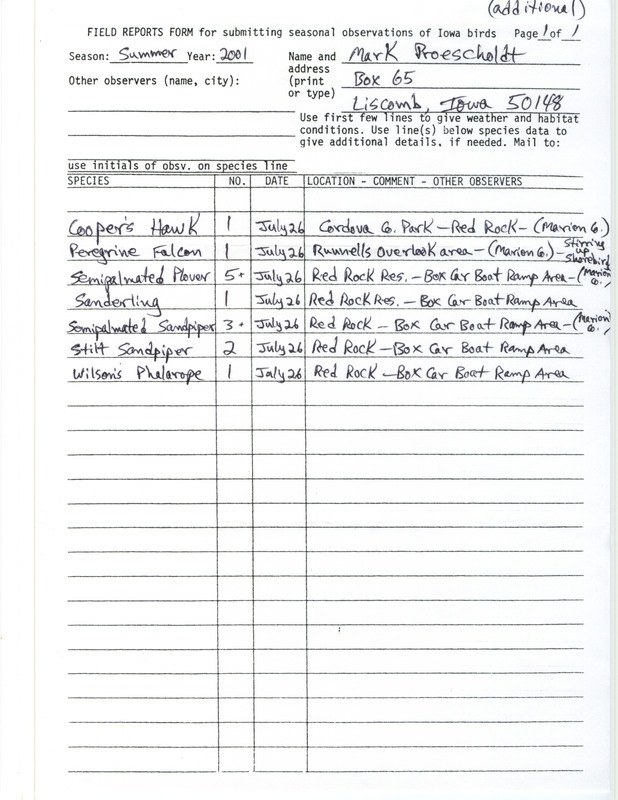 (additional)
FIELD REPORTS FORM for submitting seasonal observations of Iowa birds Page 1 of 1
Season: Summer Year: 2001 Name and Mark Proescholdt
address
Other observers (name, city): (print Box 65
or type)
Liscomb, Iowa 50148
Use first few lines to give weather and habitat
conditions. Use line(s) below species data to
give additional details, if needed. Mail to:
use initials of obsv. on species line
SPECIES NO. DATE LOCATION - COMMENT - OTHER OBSERVERS
Cooper's Hawk 1 July 26 Cordova Co. Park - Red Rock - (Marion Co.)
Peregrine Falcon 1 July 26 Runnells Overlook area - (Marion Co.) - stirring up shorebirds
Semipalmated Plover 5+ July 26 Red Rock Res. - Box Car Boat Ramp Area - (Marion Co.)
Sanderling 1 July 26 Red Rock Res. - Box Car Boat Ramp Area
Semipalmated Sandpiper 3+ July 26 Red Rock - Box Car Boat Ramp Area - (Marion Co.)
Stilt Sandpiper 2 July 26 Red Rock - Box Car Boat Ramp Area
Wilson's Phalarope 1 July 26 Red Rock - Box Car Boat Ramp Area